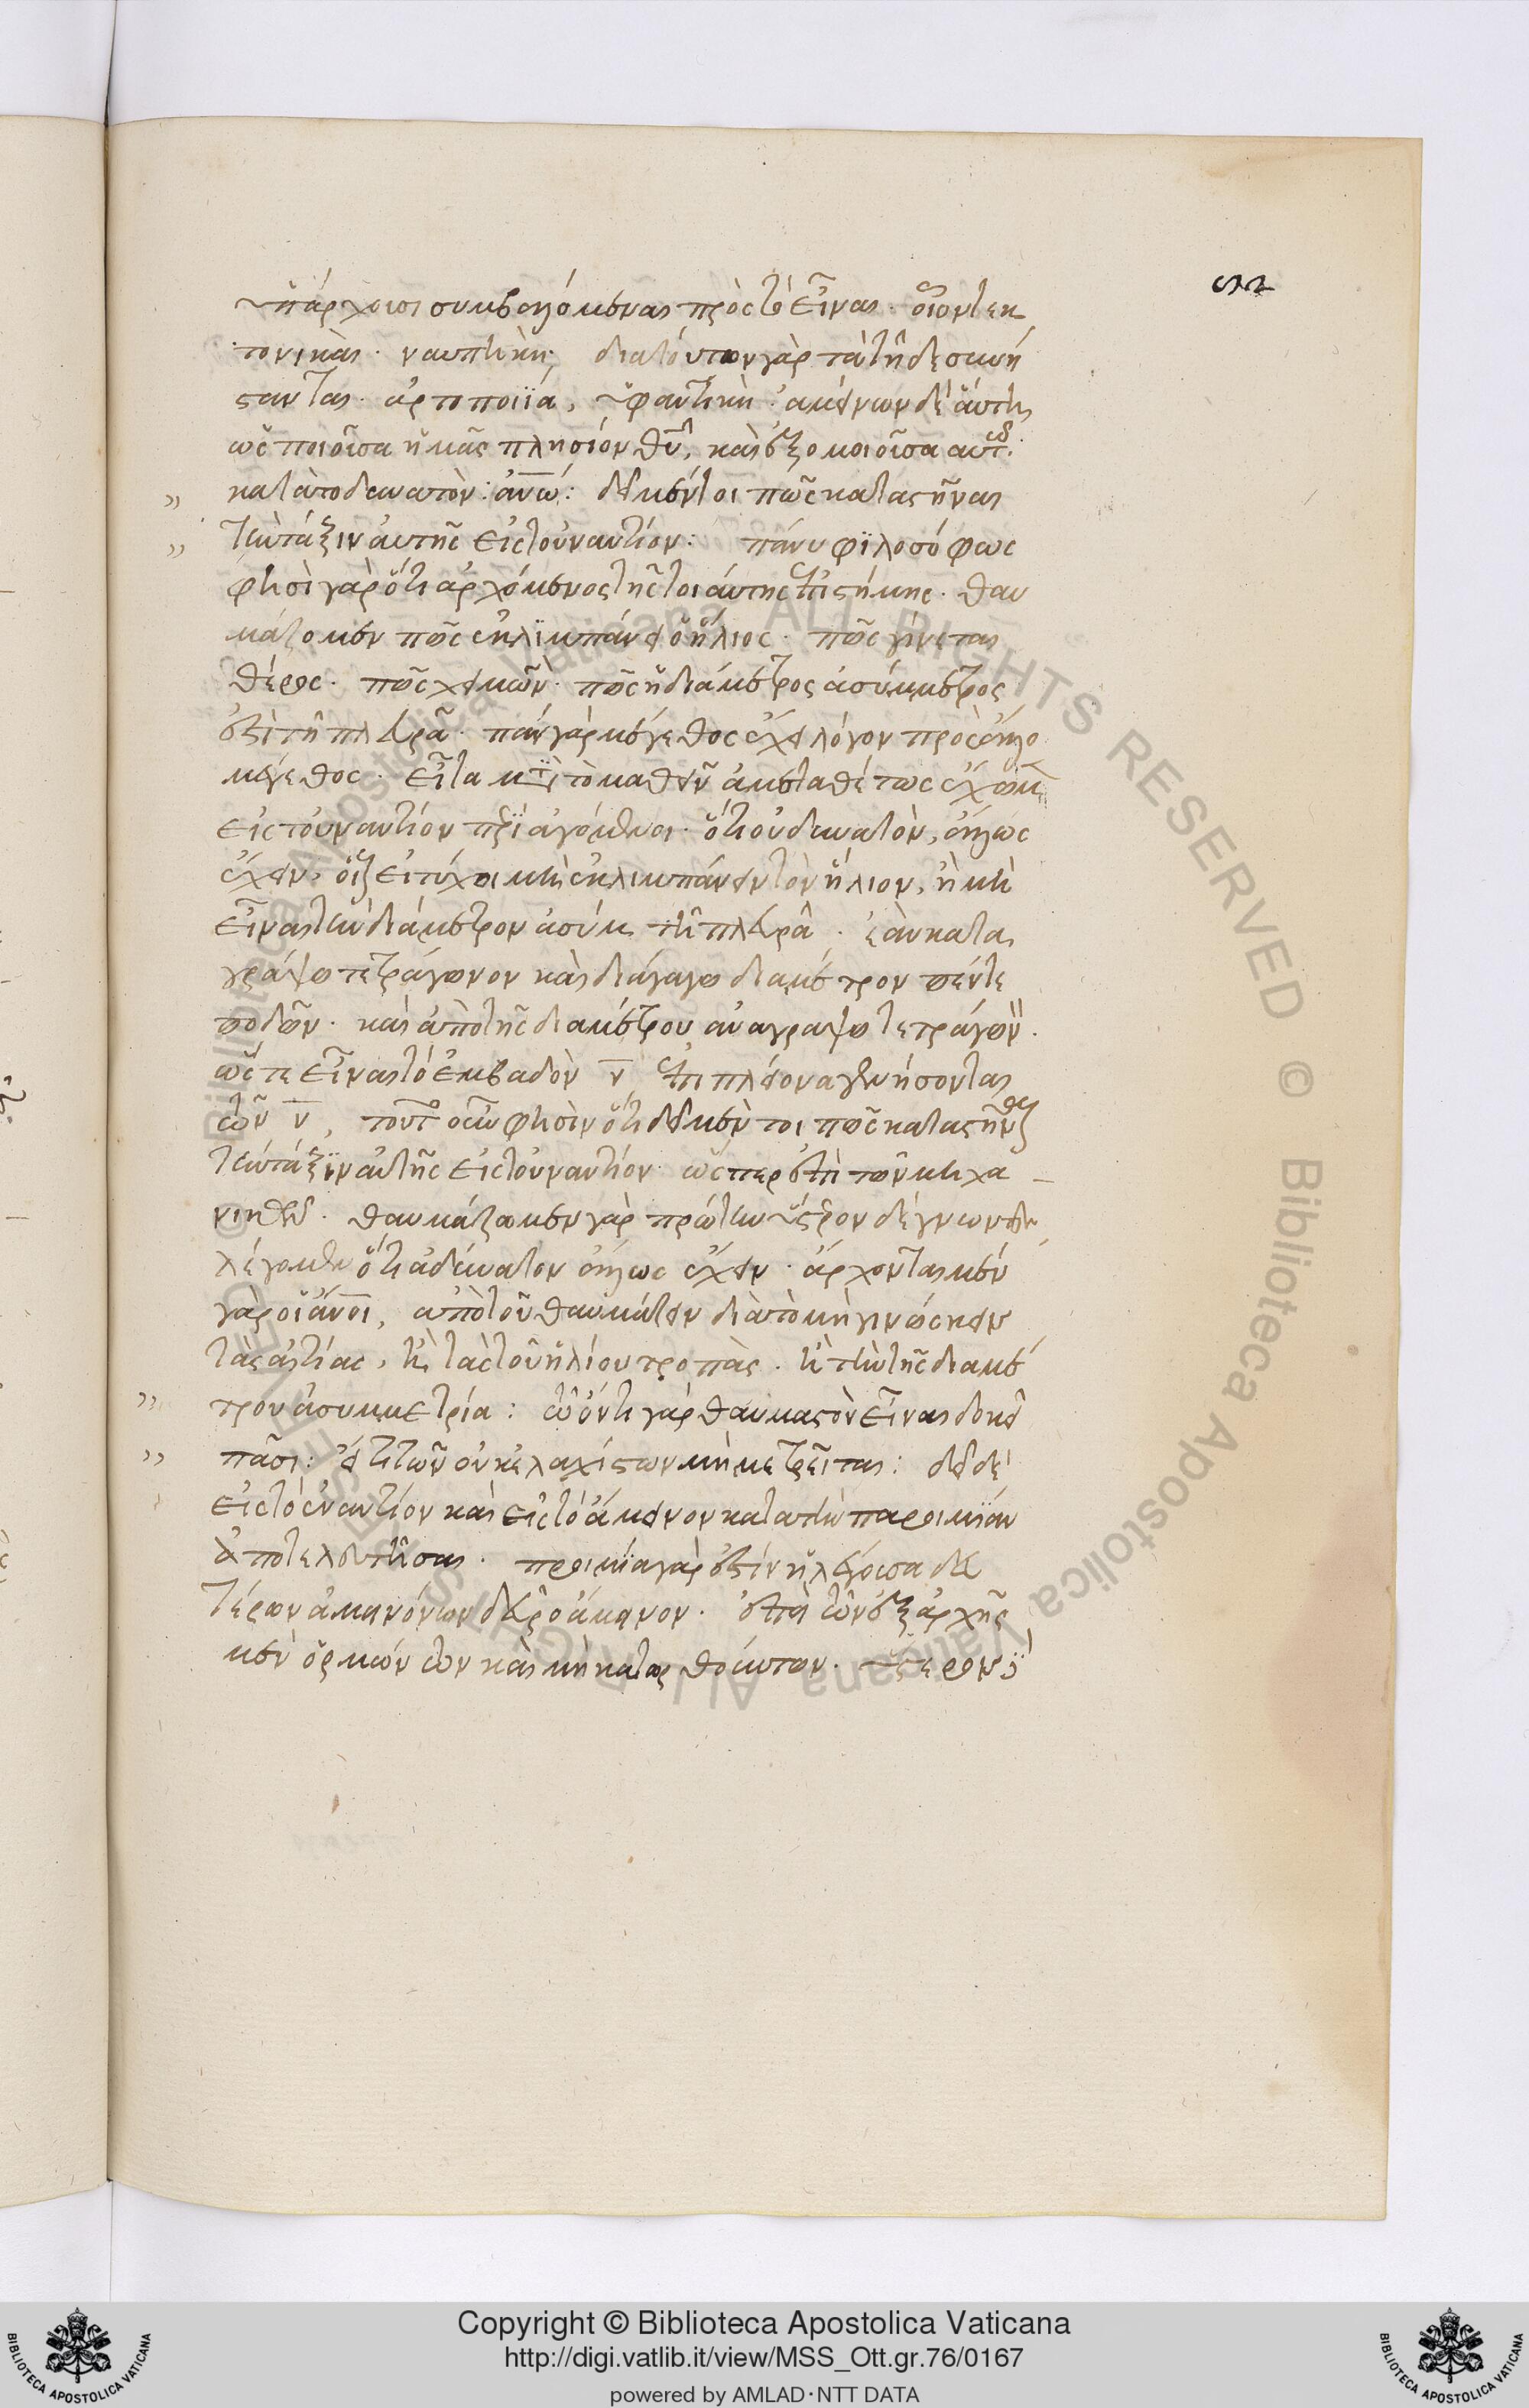 ὑπάρχουσι συμβαλόμεναι πρὸς τὸ εἶναι. οἷον τεκ
τονικὴ. ναυπηκὴ. διὰ τούτων γὰρ τὰ τῇδε συνί
σταται. ἀρτοποιΐα, ὑφαντικὴ. ἀμείνων δὲ αὕτη
ὡς ποιοῦσα ἡμᾶς πλησίον θυ, καὶ ἐξομοιοῦσα αὐτῷ.
κατὰ τὸ δυνατὸν: ἀνω: δεῖ μέντοι πῶς καταστῆναι
τὴν τάξιν αὐτῆς εἰς τοὐναντίον: πάνυ φϊλοσόφως
φησὶ γὰρ ὅτι ἀρχόμενος τῆς τοιαύτης ἐπιστήμης. θαυ
μάζομεν πῶς ἐκλϊμπάνει ὁ ἥλιος. πῶς γίνεται
θέρος. πῶς χειμῶν. πῶς ἡ διάμετρος ἀσύμμετρος
ἐστὶ τῇ πλευρᾷ. πᾶν γὰρ μέγεθος ἔχει λόγον πρὸς ἄλλο
μέγεθος. εἶτα μετὰ τὸ μαθεῖν ἀμεταθέτως ἔχομεν
εἰς τοὐναντίον περιαγόμενοι. ὅτι οὐ δυνατὸν, ἄλλως
ἔχειν, οἷον εἰ τύχοι μὴ ἐκλιμπάνειν τὸν ἥλιον, ἢ μὴ
εἶναι τὴν διάμετρον ἀσύμ τῇ πλευρᾷ. ἐὰν κατα
γράψω τετράγωνον καὶ διάγαγω διαμέτρον πέντε
ποδῶν. καὶ ἀπὸ τῆς διαμέτρου ἀναγράψω τετράγων.
ὥστε εἶναι τὸ ἐμβαδὸν ν ἐπὶ πλέονα γενήσονται
τῶν ν, τοῦτο οὖν φησὶν ὅτι δεῖ μέν τοι πῶς καταστῆναι
τὴν τάξϊν αὐτῆς εἰς τοὐναντίον ὥσπερ ἐπὶ τῶν μηχα
νικῶν. θαυμάζομεν γὰρ πρώτην ὕστερον δὲ γνωντες
λέγομεν ὅτι ἀδύνατον ἄλλως ἔχειν. ἄρχονται μὲν
γὰρ οἱ ἄνοι, ἀπὸ τοῦ θαυμάζειν διὰ τὸ μὴ γινώσκειν
τὰς αἰτίας, ἢ τὰς τοῦ ἡλίου τροπὰς. ἢ τὴν τῆς διαμέ
τρου ἀσυμμετρία: τῷ ὄντι γὰρ θαυμαστὸν εἶναι δοκεῖ
πᾶσι: εἴ τι τῶν οὐκ ἐλαχίστων μὴ μετρεῖται: δεῖ δὲ
εἰς τὸ ἐναντίον καὶ εἰς τὸ ἄμεινον κατὰ τὴν παροιμΐαν
ἀποτελευτῆσαι. παροιμΐα γὰρ ἐστὶν ἡ λέγουσα δευ
τέρων ἀμεινόνων δεύρο ἄμεινον. ἐπὶ τῶν ἐξ ἀρχῆς
μὲν ὁρμώντων καὶ μὴ κατορθούντων. ὕστερον